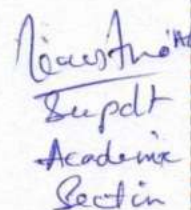 Supdt
Academic
Section